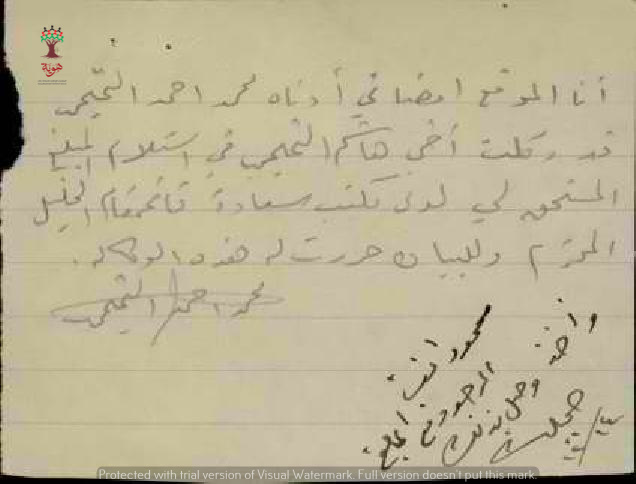 هوية
أنا الموقع امضائي أدناه محمد احمد التميمي
قد وكلت أخي هاشم التميمي في استلام المبلغ
المستحق لي لدى مكتب سعادة قائمقام الخليل
المحترم وللبيان حررت له هذه الوكالة.
محمد احمد التميمي
محمود افندي
الرجو دفع المبلغ
وأخذ وصل بذلك
Protected with trial version of Visual Watermark. Full version doesn't put this mark.